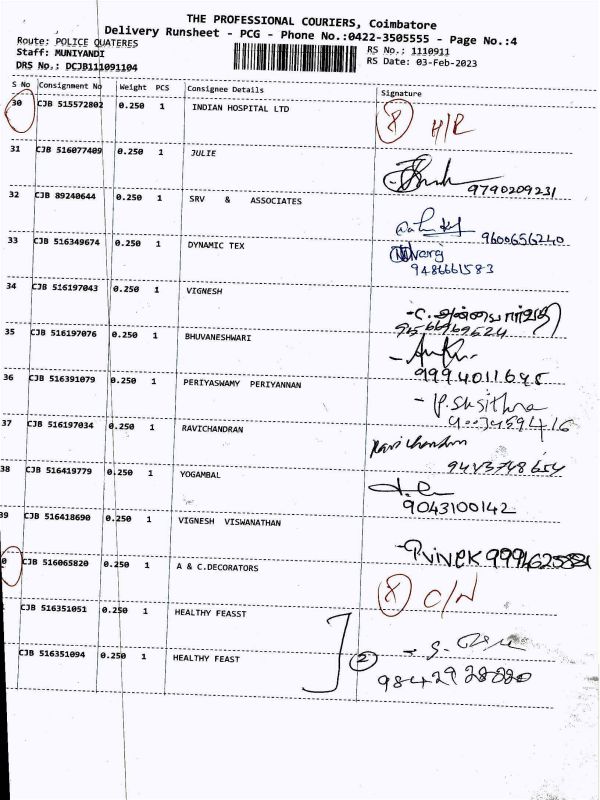 THE PROFESSIONAL COURIERS, Coimbatore
Delivery Runsheet - PCG - Phone No.:0422-3505555 - Page No.:4
Route: POLICE QUATERES
Staff: MUNIYANDI
DRS No.: DCJB111091104
RS No.: 1110911
RS Date: 03-Feb-2023
S No Consignment No Weight PCS Consignee Details Signature
30 CJB 515572802 0.250 1 INDIAN HOSPITAL LTD X H/R
31 CJB 516077409 0.250 1 JULIE
9790209231
32 CJB 89240644 0.250 1 SRV & ASSOCIATES
9600656240
33 CJB 516349674 0.250 1 DYNAMIC TEX
9486661583
34 CJB 516197043 0.250 1 VIGNESH
9566969624
35 CJB 516197076 0.250 1 BHUVANESHWARI
9994011695
36 CJB 516391079 0.250 1 PERIYASWAMY PERIYANNAN
- P. Susithra
37 CJB 516197034 0.250 1 RAVICHANDRAN
Ravichandran
38 CJB 516419779 0.250 1 YOGAMBAL
9043100142
39 CJB 516418690 0.250 1 VIGNESH VISWANATHAN
- P. VIVEK
0 CJB 516065820 0.250 1 A & C.DECORATORS X C/N
CJB 516351051 0.250 1 HEALTHY FEASST
CJB 516351094 0.250 1 HEALTHY FEAST 2